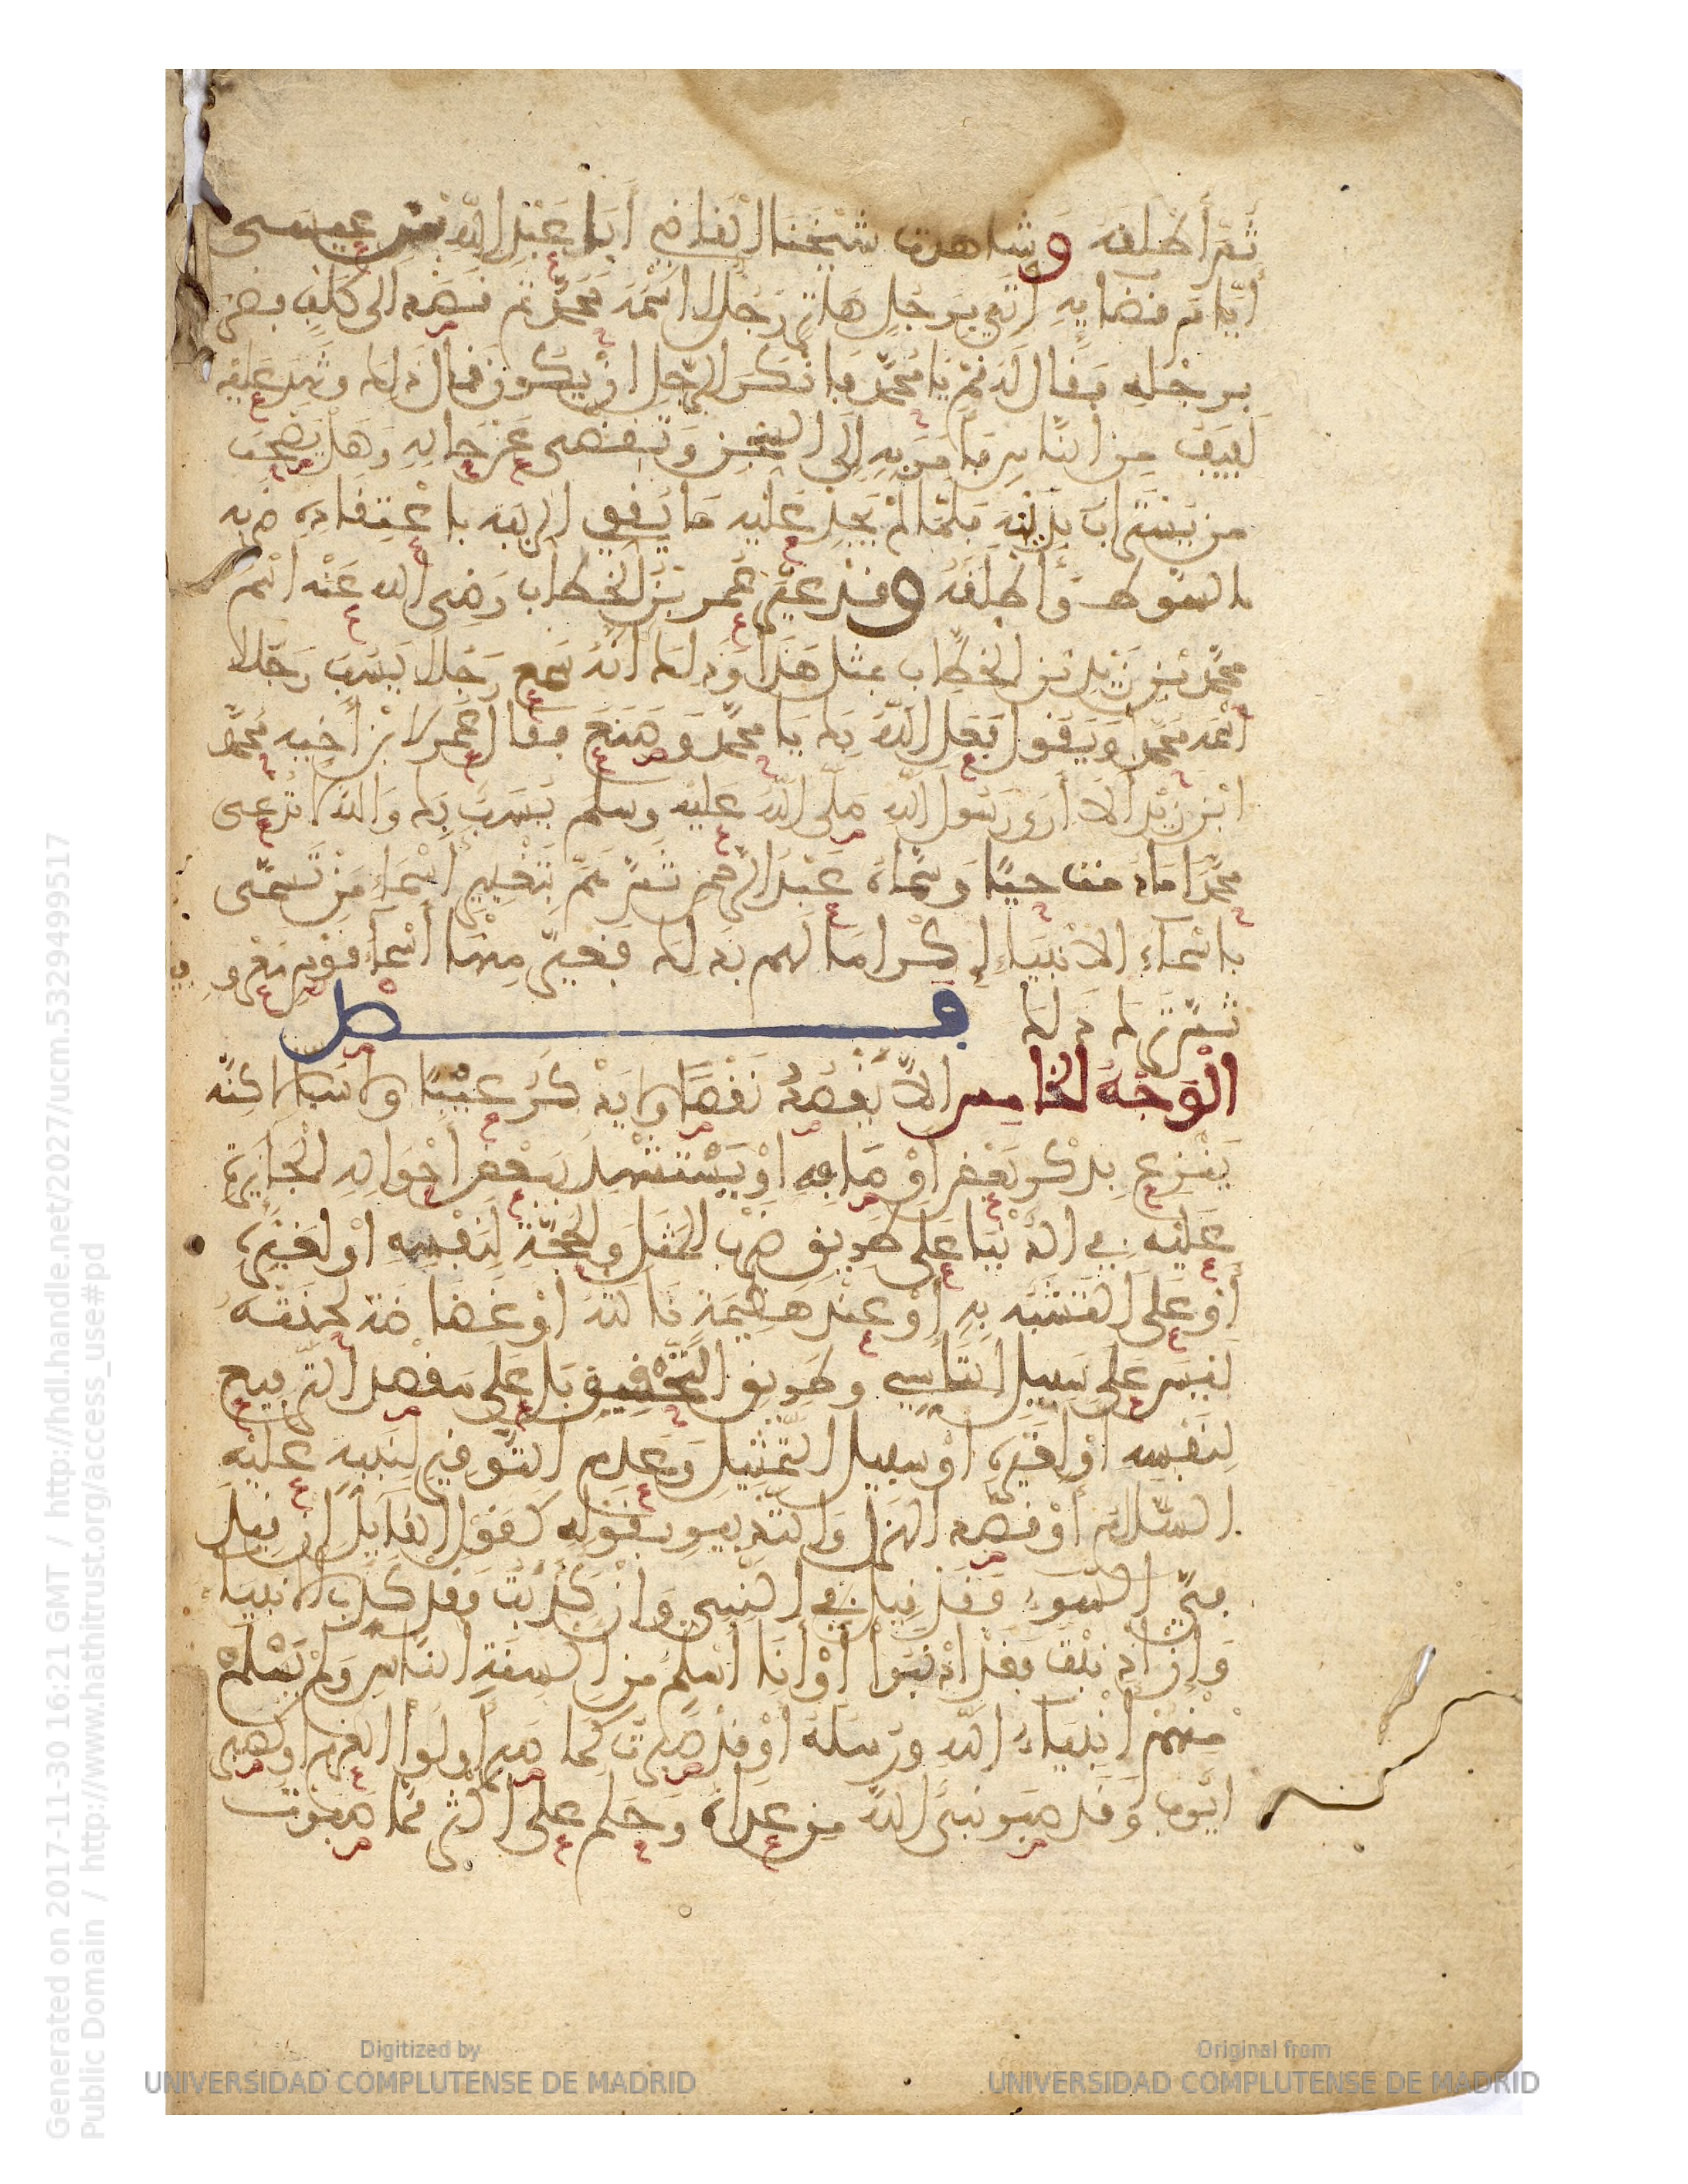 ثم أطلقه وشاهدت شيخنا القاضي أبا عبد الله بن عيسى
أيام قضايه أتي برجل هاتر رجلا اسمه محمد ثم قصد إلى كلب فضربه
برجله وقال له قم يا محمد فأنكر الرجل أن يكون قال ذلك وشهد عليه
لفيف من الناس فأمر به إلى السجن وتقصى عن حاله وهل يصحب
من يستراب بدينه فلما لم يجد عليه ما يقوي الريبة باعتقاده ضربه
بالسوط وأطلقه وقد غير عمر بن الخطاب رضي الله عنه اسم
محمد بن زيد بن الخطاب بمثل هذا وذلك أنه سمع رجلا يسب رجلا
اسمه محمد ويقول فعل الله بك يا محمد وصنع فقال عمر لابن أخيه محمد
ابن زيد ألا أرى رسول الله صلى الله عليه وسلم يسب بك والله لا تدعى
محمدا ما دمت حيا وسماه عبد الرحمن ثم هم بتغيير أسماء من تسمى
بأسماء الأنبياء إكراما لهم بذلك فغير منها أسماء قوم معرو
ثم ترك ذلك فصل
الوجه الخامس ألا يقصد نقصا ولا يذكر عيبا ولا سبا لكنه
ينزع بذكر بعض أوصافه أو يستشهد ببعض أحواله الجايزة
عليه في الدنيا على طريق ضرب المثل والحجة لنفسه أو لغيره
أو على التشبه به أو عند هضيمة نالته أو غضاضة لحقته
ليس على سبيل التأسي وطريق التحقيق بل على مقصد الترفيع
لنفسه أو لغيره أو سبيل التمثيل وعدم التوقير لنبيه عليه
السلام أو قصد الهزل والتنذير بقوله كقول القايل إن قيل
في السوء فقد قيل في النبي وإن كذبت فقد كذب الأنبيا
وإن أذنبت فقد أذنبوا أو أنا أسلم من ألسنة الناس ولم يسلم
منهم أنبياء الله ورسله أو قد صبرت كما صبر أولوا العزم أو كصبر
أيوب وقد صبر نبي الله من عداه وحلم على أكثر مما صبرت
Generated on 2017-11-30 16:21 GMT / http://hdl.handle.net/2027/ucm.5329499517
Public Domain / http://www.hathitrust.org/access_use#pd
Digitized by
UNIVERSIDAD COMPLUTENSE DE MADRID
Original from
UNIVERSIDAD COMPLUTENSE DE MADRID